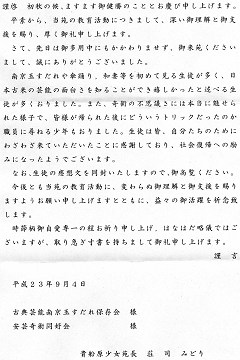 謹啓　初秋の候、ますます御健勝のこととお慶び申し上げます。
平素から、当苑の教育活動につきまして、深い御理解と御支
援を賜り、厚く御礼申し上げます。
さて、先日は御多用中にもかかわりませず、御来苑ください
まして、誠にありがとうございました。
南京玉すだれや傘踊り、和妻等を初めて見る生徒が多く、日
本古来の芸能の面白さを知ることができ嬉しかったと述べる生
徒が多くおりました。また、奇術の不思議さには本当に魅せら
れた様子で、皆様が帰られた後にどういうトリックだったのか
職員に尋ねる少年もおりました。生徒は皆、自分たちのために
わざわざ来ていただいたことに感謝しており、社会復帰への励
みになったようでございます。
なお、生徒の感想文を同封いたしますので、御高覧ください。
今後とも当苑の教育活動に、変わらぬ御理解と御支援を賜り
ますようお願い申し上げますとともに、益々の御活躍を祈念致
します。
時節柄御自愛専一の程お祈り申し上げ、はなはだ略儀ではご
ざいますが、取り急ぎ寸書を持ちまして御礼申し上げます。
謹　言
平成２３年９月４日
古典芸能南京玉すだれ保存会　様
安芸奇術同好会　様
貴船原少女苑長　荘　司　みどり